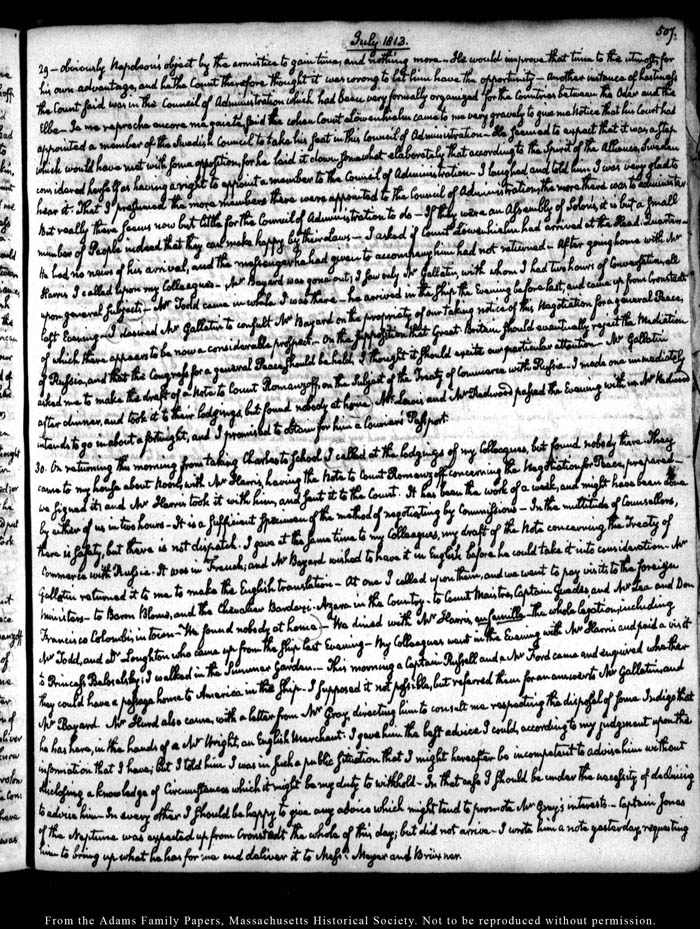 507.
July 1813.
29 — obviously Napoleon's object by the armistice to gain time; and nothing more — He would improve that time to the utmost, for
his own advantage, and he the Count therefore thought it was wrong to let him have the opportunity — Another instance of
the Count said was in the Council of Administration which had been very formally organized for the Countries between the Oder and the
Elbe — Je me reproche encore ma gaieté, said the when Count Löwenhielm came to me very gravely to give me Notice that his Court had
appointed a member of the Swedish Council to take his seat in this Council of Administration — He seemed to expect that it was a step
which would have met with some opposition, for he laid it down somewhat elaborately that according to the Spirit of the Alliance, Sweden
considered herself as having a right to appoint a member to the Council of Administration — I laughed, and told him I was very glad to
hear it: That I presumed the more members there were appointed to the Council of Administration, the more there was to administer
But really there seems now but little for the Council of Administration to do — If they were an Assembly of Solons, it is but a small
number of People indeed that they can make happy by their laws — I asked if Count Löwenhielm had arrived at the Head-Quarters —
He had no news of his arrival, and the messenger he had given to accompany him had not returned — After going home with Mr
Harris I called upon my Colleagues — Mr Bayard was gone out; I saw only Mr Gallatin, with whom I had two hours of Conversation, all
upon general subjects — Mr Todd came in while I was there — he arrived in the Ship the Evening before last, and came up from Cronstadt
last Evening — I desired Mr Gallatin to consult Mr Bayard on the propriety of our taking notice of this Negotiation for a general Peace,
of which there appears to be now a considerable prospect — On the supposition that Great Britain should eventually reject the Mediation
of Russia, and that the Congress for a general Peace should be held, I thought it should excite our particular attention — Mr Gallatin
asked me to make the draft of a Note to Count Romanzoff, on the subject of the Treaty of Commerce with Russia — I made one immediately
after dinner, and took it to their lodgings but found nobody at home. Mr Lewis and Mr Hurd passed the Evening with us Mr Hurd
intends to go in about a fortnight, and I promised to obtain for him a Courier's Passport.
30. On returning this morning from taking Charles to School I called at the lodgings of my Colleagues, but found nobody there. They
came to my house about Noon, with Mr Harris, having the Note to Count Romanzoff concerning the Negotiation for Peace, prepared —
we signed it, and Mr Harris took it with him, and sent it to the Count. It has been the work of a week, and might have been done
by either of us in two hours — It is a sufficient specimen of the method of negotiating by Commissions — In the multitude of Counsellors,
there is safety, but there is not dispatch. I gave at the same time to my Colleagues, my draft of the Note concerning the Treaty of
Commerce with Russia. It was in French; and Mr Bayard wished to have it in English before he could take it into consideration — Mr
Gallatin returned it to me to make the English translation — At one I called upon them, and we went to pay visits to the foreign
Ministers — to Baron Blome, and the Chevalier Bardaxi-Azara in the Country — to Count Maistre, Captain Guedes, and Mr Zea and Don
Francisco Colombi, in town — We found nobody at home — We dined with Mr Harris, en famille. the whole legation, including
Mr Todd, and Dr Loughton who came up from the Ship last Evening — My Colleagues went in the Evening with Mr Harris and paid a visit
to Princess Beloselsky; I walked in the Summer Gardens — This morning a Captain Russell and a Mr Ford came and enquired whether
they could have a passage home to America in the Ship — I supposed it not possible, but referred them for an answer to Mr Gallatin, and
Mr Bayard. Mr Hurd also came, with a letter from Mr Gray, directing him to consult me respecting the disposal of some Indigo that
he has here, in the hands of a Mr Wright, an English Merchant. I gave him the best advice I could, according to my judgment upon the
information that I have; but I told him I was in such a public situation that I might hereafter be incompetent to advise him without
disclosing a knowledge of Circumstances which it might be my duty to withhold — In that case I should be under the necessity of declining
to advise him. In every other I should be happy to give any advice which might tend to promote Mr Gray's interests — Captain Jones
of the Neptune was expected up from Cronstadt the whole of this day; but did not arrive — I wrote him a note yesterday, requesting
him to bring up what he has for me and deliver it to Messrs Meyer and Brüxner.
From the Adams Family Papers, Massachusetts Historical Society. Not to be reproduced without permission.